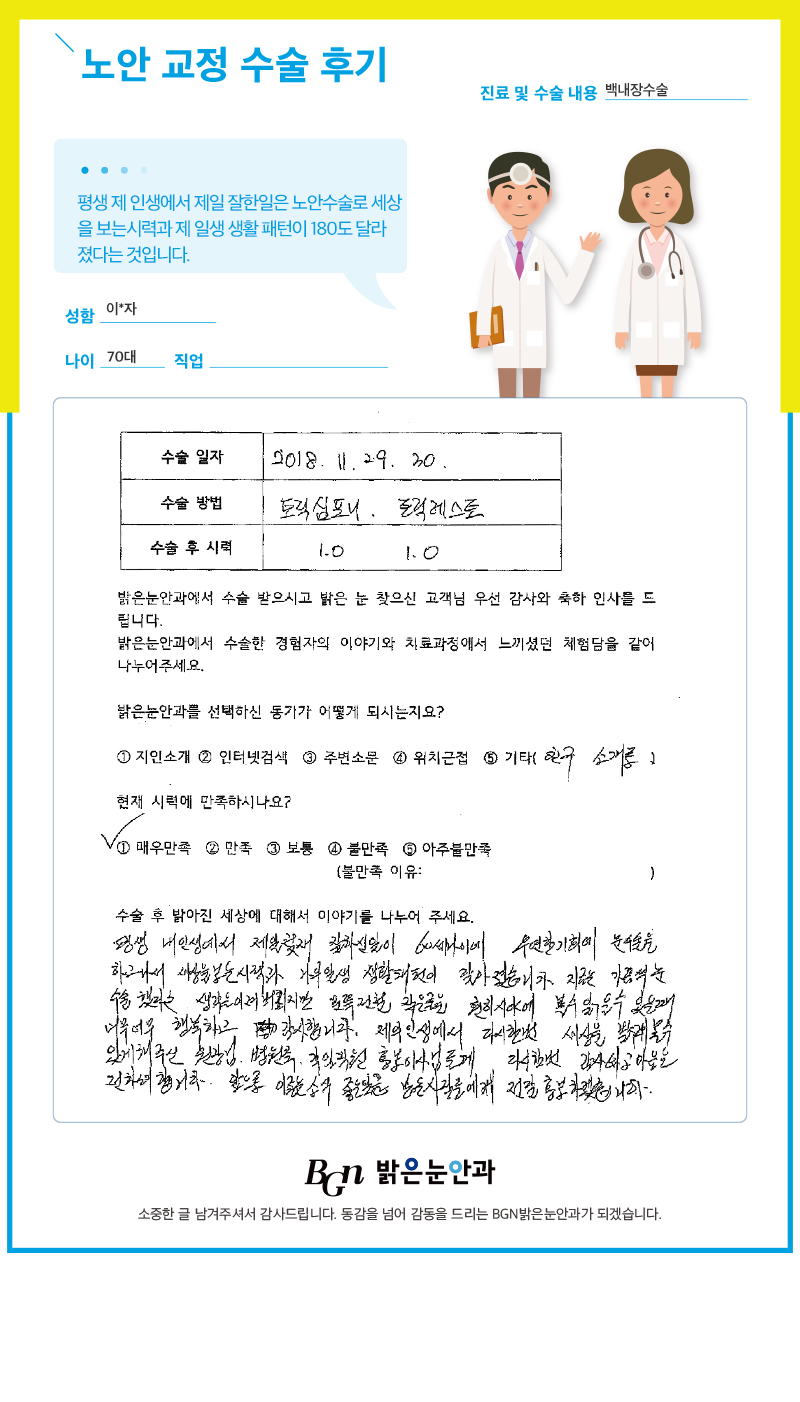 노안 교정 수술 후기
진료 및 수술 내용 백내장수술
평생 제 인생에서 제일 잘한일은 노안수술로 세상
을 보는시력과 제 일생 생활 패턴이 180도 달라
졌다는 것입니다.
성함 이*자
나이 70대 직업
수술 일자 2018. 11. 29. 30.
수술 방법 토릭심포니. 토릭레스토
수술 후 시력 1.0 1.0
밝은눈안과에서 수술 받으시고 밝은 눈 찾으신 고객님 우선 감사와 축하 인사를 드
립니다.
밝은눈안과에서 수술한 경험자의 이야기와 치료과정에서 느끼셨던 체험담을 같이
나누어주세요.
밝은눈안과를 선택하신 동기가 어떻게 되시는지요?
① 지인소개 ② 인터넷검색 ③ 주변소문 ④ 위치근접 ⑤ 기타( 친구 소개로 )
현재 시력에 만족하시나요?
① 매우만족 ② 만족 ③ 보통 ④ 불만족 ⑤ 아주불만족
(불만족 이유: )
수술 후 밝아진 세상에 대해서 이야기를 나누어 주세요.
평생 내인생에서 제일 60세나이에 우연한기회에 눈수술을
하고나서 세상을보는시력과 생활패턴이 지금은
수술 했다는
너무너무 행복하고 감사합니다. 제의인생에서 다시한번 세상을 밝게볼수
있게해주신 원장님. 병원측. 다시한번
전하려합니다. 앞으로
BGn 밝은눈안과
소중한 글 남겨주셔서 감사드립니다. 동감을 넘어 감동을 드리는 BGN밝은눈안과가 되겠습니다.